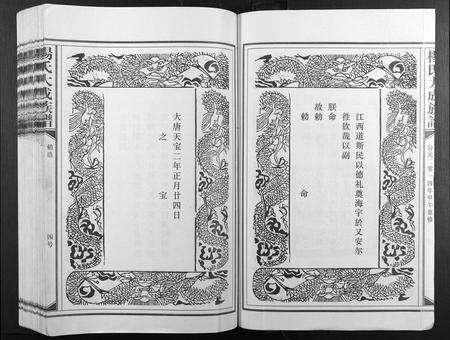 楊氏大成族譜
公元二〇一四年甲午重修
江西道斯民以德礼奠海宇於乂安尔
徃钦哉以副
朕命
故勅
勅命
大唐天宝二年正月廿四日
之宝
楊氏大成族譜
四号